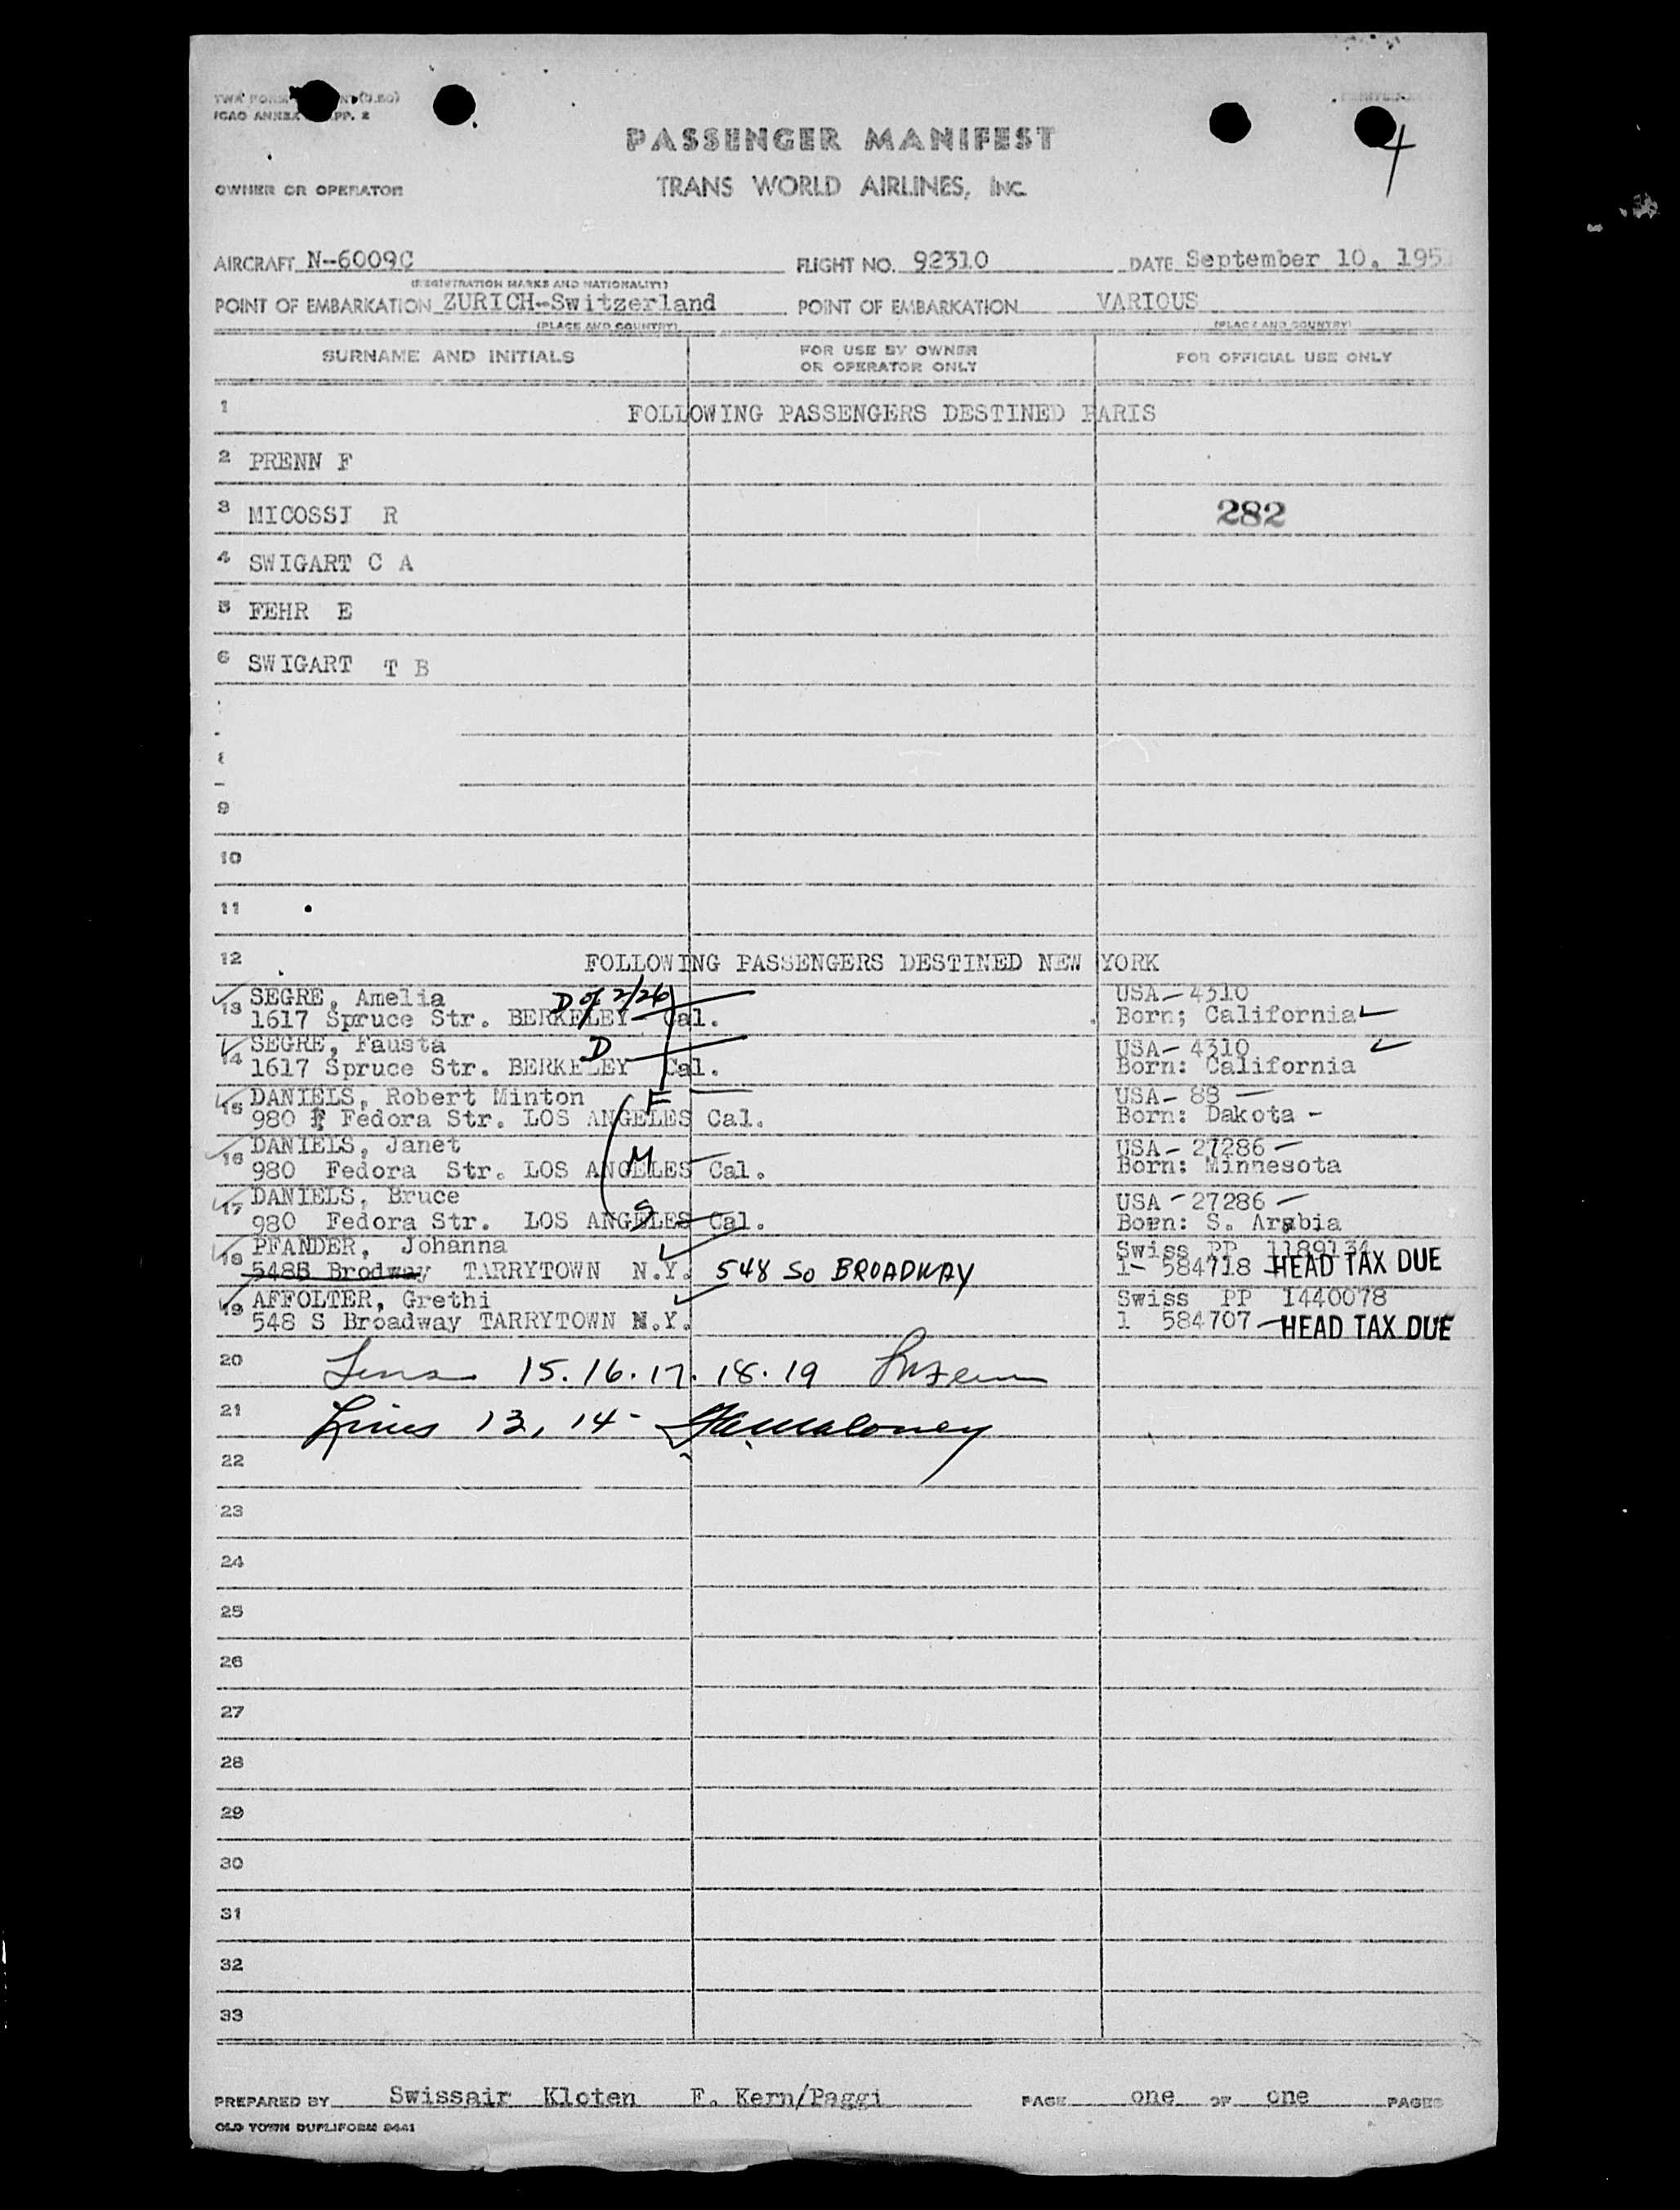 ICAO ANNEX PP. 2
PASSENGER MANIFEST
4
OWNER OR OPERATOR
TRANS WORLD AIRLINES, INC.
AIRCRAFT N-6009C FLIGHT NO. 92310 DATE September 10, 195
(REGISTRATION MARKS AND NATIONALITY)
POINT OF EMBARKATION ZURICH-Switzerland POINT OF EMBARKATION VARIOUS
(PLACE AND COUNTRY) (PLACE AND COUNTRY)
SURNAME AND INITIALS FOR USE BY OWNER OR OPERATOR ONLY FOR OFFICIAL USE ONLY
1 FOLLOWING PASSENGERS DESTINED PARIS
2 PRENN F
3 MICOSSI R 282
4 SWIGART C A
5 FEHR E
6 SWIGART T B
9
10
11
12 FOLLOWING PASSENGERS DESTINED NEW YORK
13 SEGRE, Amelia D of 2/26 USA- 4310
1617 Spruce Str. BERKELEY Cal. Born; California
14 SEGRE, Fausta D USA- 4310
1617 Spruce Str. BERKELEY Cal. Born: California
15 DANIELS, Robert Minton F USA- 88
980 Fedora Str. LOS ANGELES Cal. Born: Dakota -
16 DANIELS, Janet M USA- 27286
980 Fedora Str. LOS ANGELES Cal. Born: Minnesota
17 DANIELS, Bruce S USA - 27286
980 Fedora Str. LOS ANGELES Cal. Born: S. Arabia
18 PFANDER, Johanna Swiss PP 1189134
548S Brodway TARRYTOWN N.Y. 548 SO BROADWAY 1- 584718 HEAD TAX DUE
19 AFFOLTER, Grethi Swiss PP 1440078
548 S Broadway TARRYTOWN N.Y. 1 584707 HEAD TAX DUE
20 15.16.17.18.19
21 Lines 13, 14-
22
23
24
25
26
27
28
29
30
31
32
33
PREPARED BY Swissair Kloten F. Kern/Paggi PAGE one OF one PAGES
OLD TOWN DUPLIFORM 9441